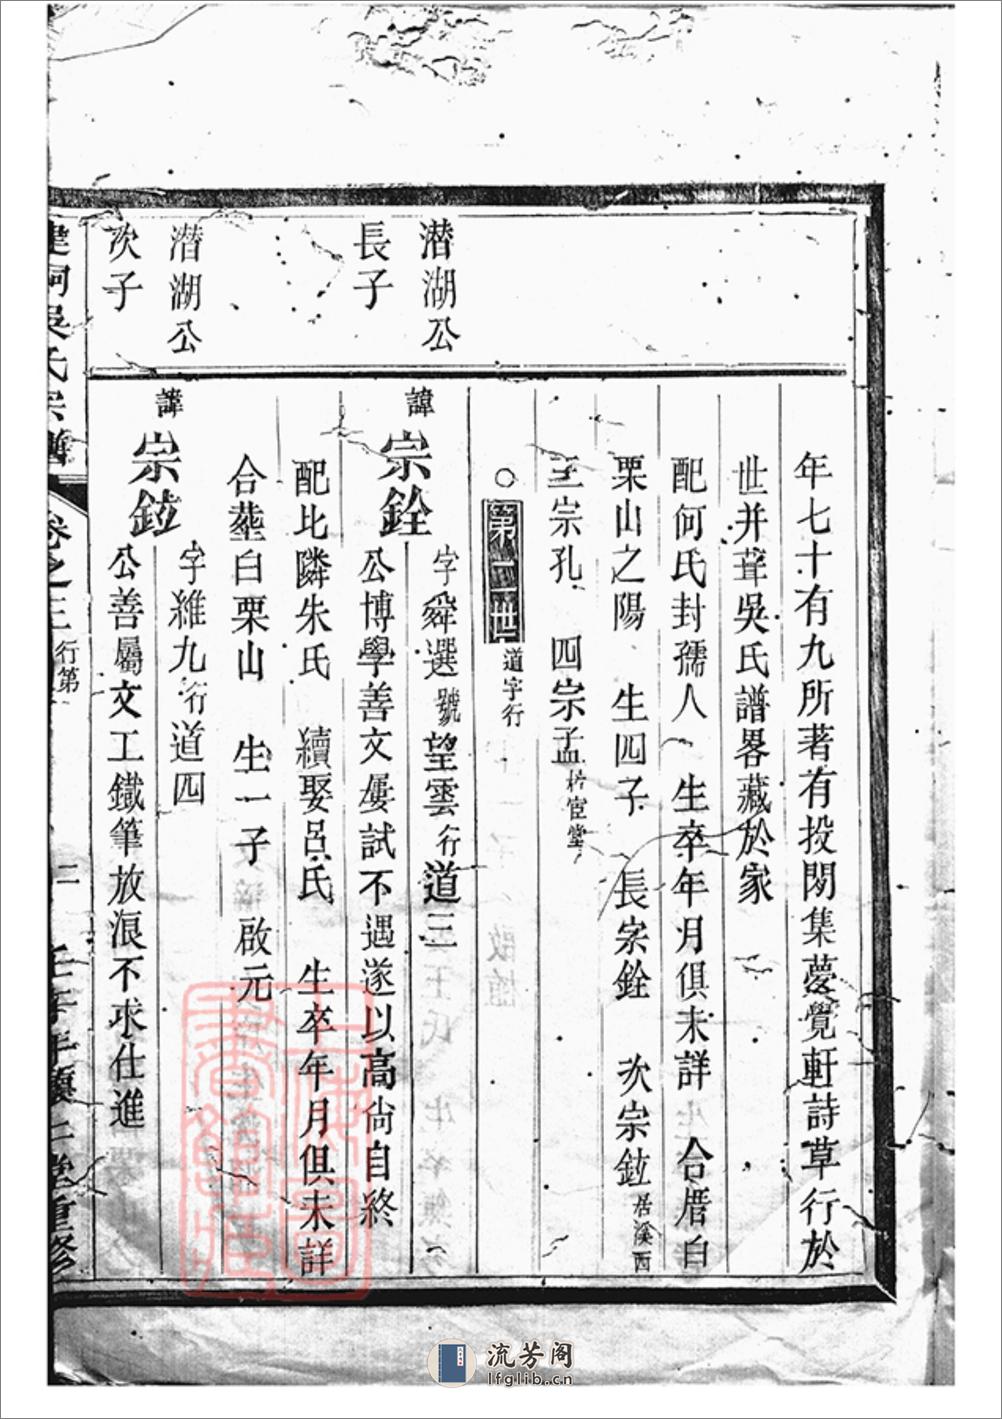 年七十有九所著有投閒集夢覺軒詩草行於
世并葺吳氏譜畧藏於家
配何氏封孺人 生卒年月俱未詳 合厝白
栗山之陽 生四子 長宗銓 次宗鉝居溪西
三宗孔 四宗孟
○第二世道字行
潛湖公
長子
諱
宗銓
字舜選號望雲行道三
公博學善文屢試不遇遂以高尙自終
配比隣朱氏 續娶呂氏 生卒年月俱未詳
合塟白栗山 生一子 啟元
潛湖公
次子
諱
宗鉝
字維九行道四
公善屬文工鐵筆放浪不求仕進
吳氏宗譜
卷之三
行第
二
重修
流芳阁
lfglib.cn